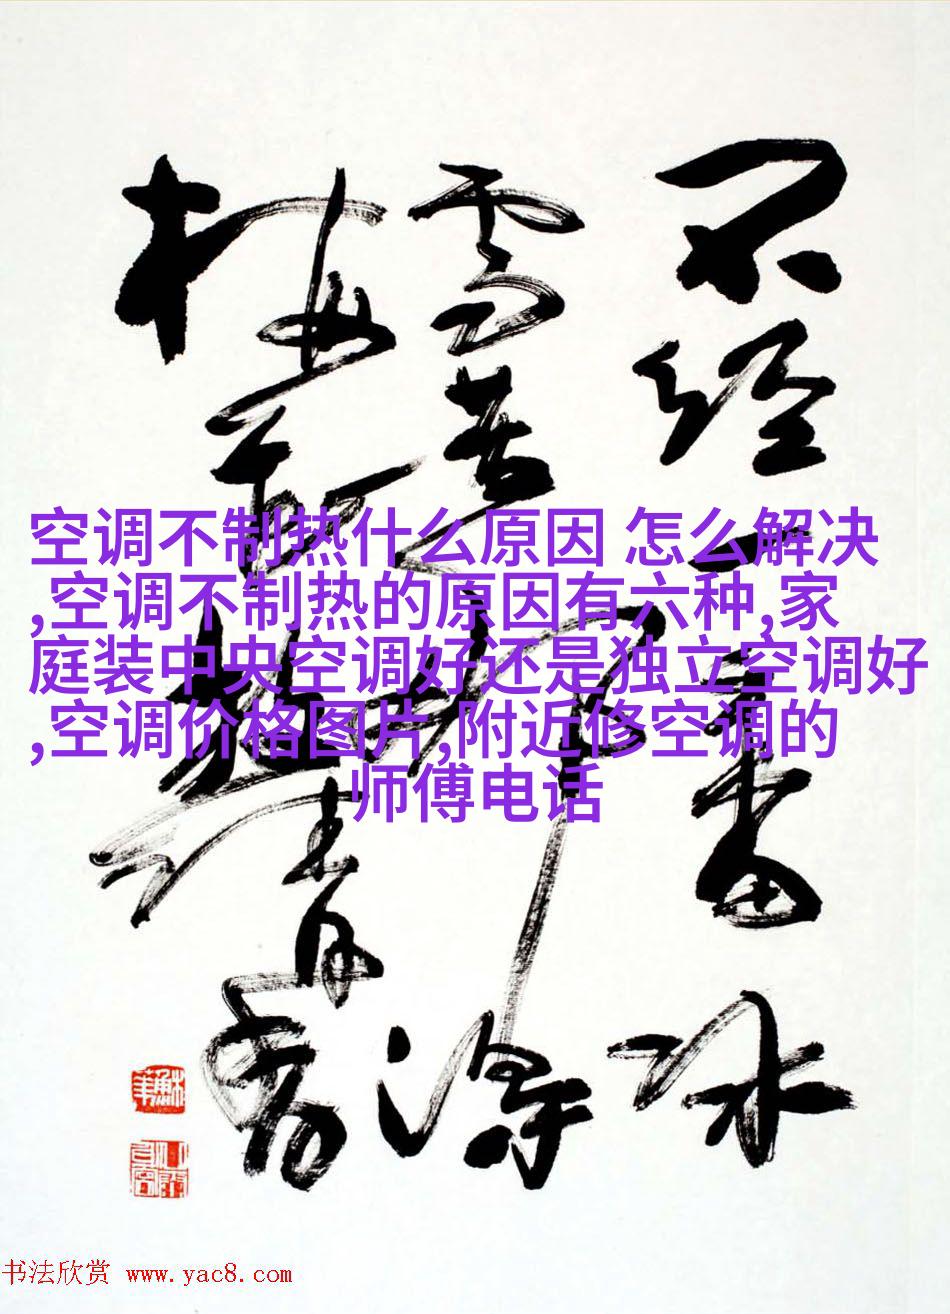 不经一番冰
雪苦那得
梅清香
空调不制热什么原因 怎么解决
,空调不制热的原因有六种,家
庭装中央空调好还是独立空调好
,空调价格图片,附近修空调的
师傅电话
书法欣赏 www.yac8.com